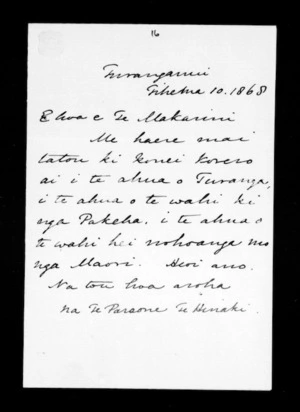 16
Turanganui
Tihema 10. 1868
E hoa e Te Makarini
Me haere mai
tatou ki konei korero
ai i te ahua o Turanga,
i te ahua o te wahi ki
nga Pakeha, i te ahua o
te wahi hei nohoanga mo
nga Maori. Heoi ano.
Na tou hoa aroha
na Te Parsone Te Hinaki.